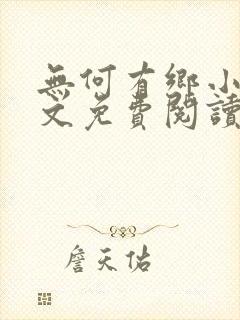 無何有鄉小
文免費閱讀
詹天佑